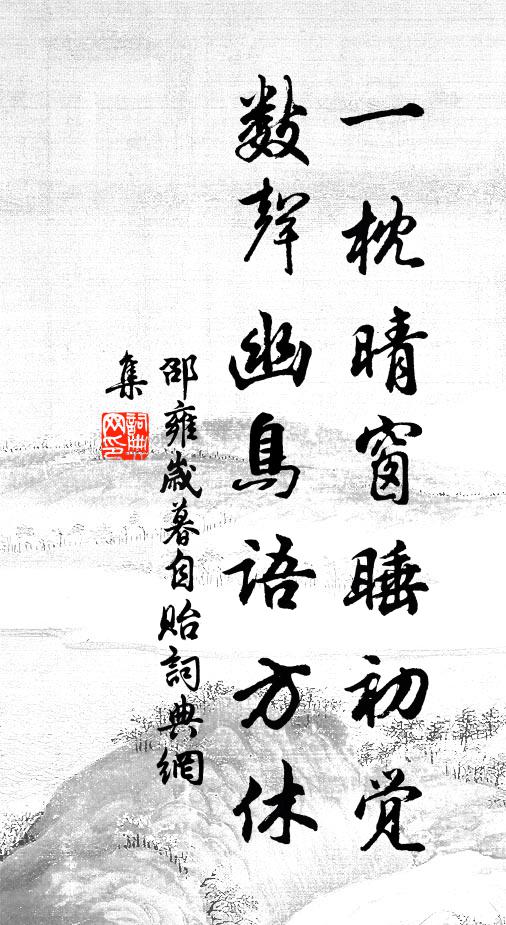 一枕晴窗睡初觉
数声幽鳥語方休
邵雍歲暮自貽詞典網
集
詞典网印